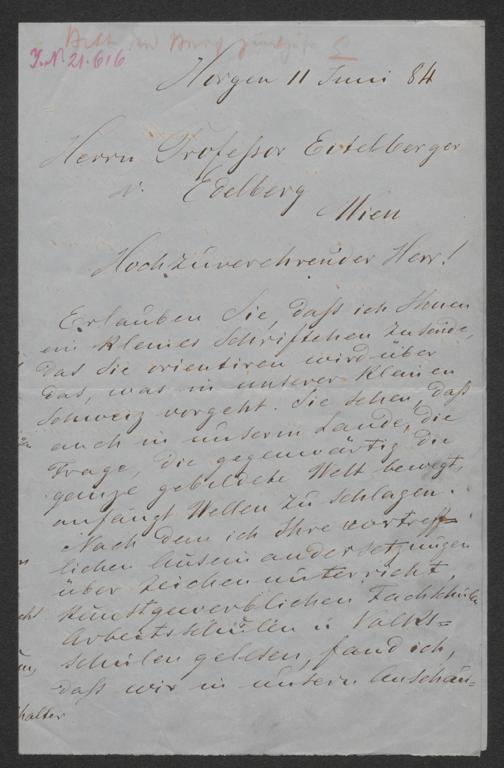 J.N. 21.616
Horgen 11 Juni 84
Herrn Professor Eitelberger
v. Edelberg
Wien
Hochzuverehrender Herr!
Erlauben Sie, daß ich Ihnen
ein kleines Schriftchen zusende,
das Sie orientiren wird über
das, was in unserer kleinen
Schweiz vorgeht. Sie sehen, daß
auch in unserm Lande, die
Frage, die gegenwärtig die
ganze gebildete Welt bewegt,
anfängt Wellen zu schlagen.
Nach dem ich Ihre vortreff=
lichen Auseinandersetzungen
über Zeichenunterricht
kunstgewerblichen Fachschulen
Arbeitsschulen u Volks=
schulen gelesen, fand ich,
daß wir in unsern Anschau=
halter